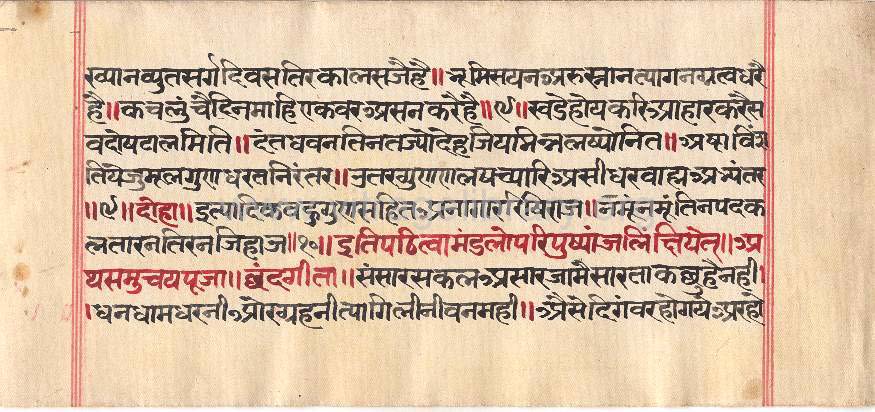 ख्यानव्युतसर्गदिवसतिरकालसजैहै॥ भूमिसयनऽअरुस्नानत्यागनग्नत्वधरै
है॥ कचलुंचैदिनमाहिएकवरऽअसनकरैहै॥९॥ खडेहोयकरिऽआहारकरैस
वदोषटालमिति॥ दंतधवनतिनतज्यो देहजियभिन्नलष्योनित॥ अष्टाविंश
तियेजुमूलगुणधरतनिरंतर॥ उतरगुण लषच्यारिऽअसीधरवाह्यऽअभ्यंतर
॥९॥ दोहा॥ इत्यादिकवहुगुणसहितऽअनागारऋषिराज॥ नमूनमूंतिनपदक
लतारनतिरनजिहाज॥१०॥ इतिपठित्वामंडलोपरिपुष्पांजलिंक्षिपेत्॥ ऽअ
थसमुच्चयपूजा॥ छंदगीता॥ संसारसकलऽअसारजामैसारताकछुहैनही।
।धनधामधरनीऽऔरग्रहनीत्यागिलीनीवनमही॥ ऽऐसेदिगंवरहोगयेऽअरहो